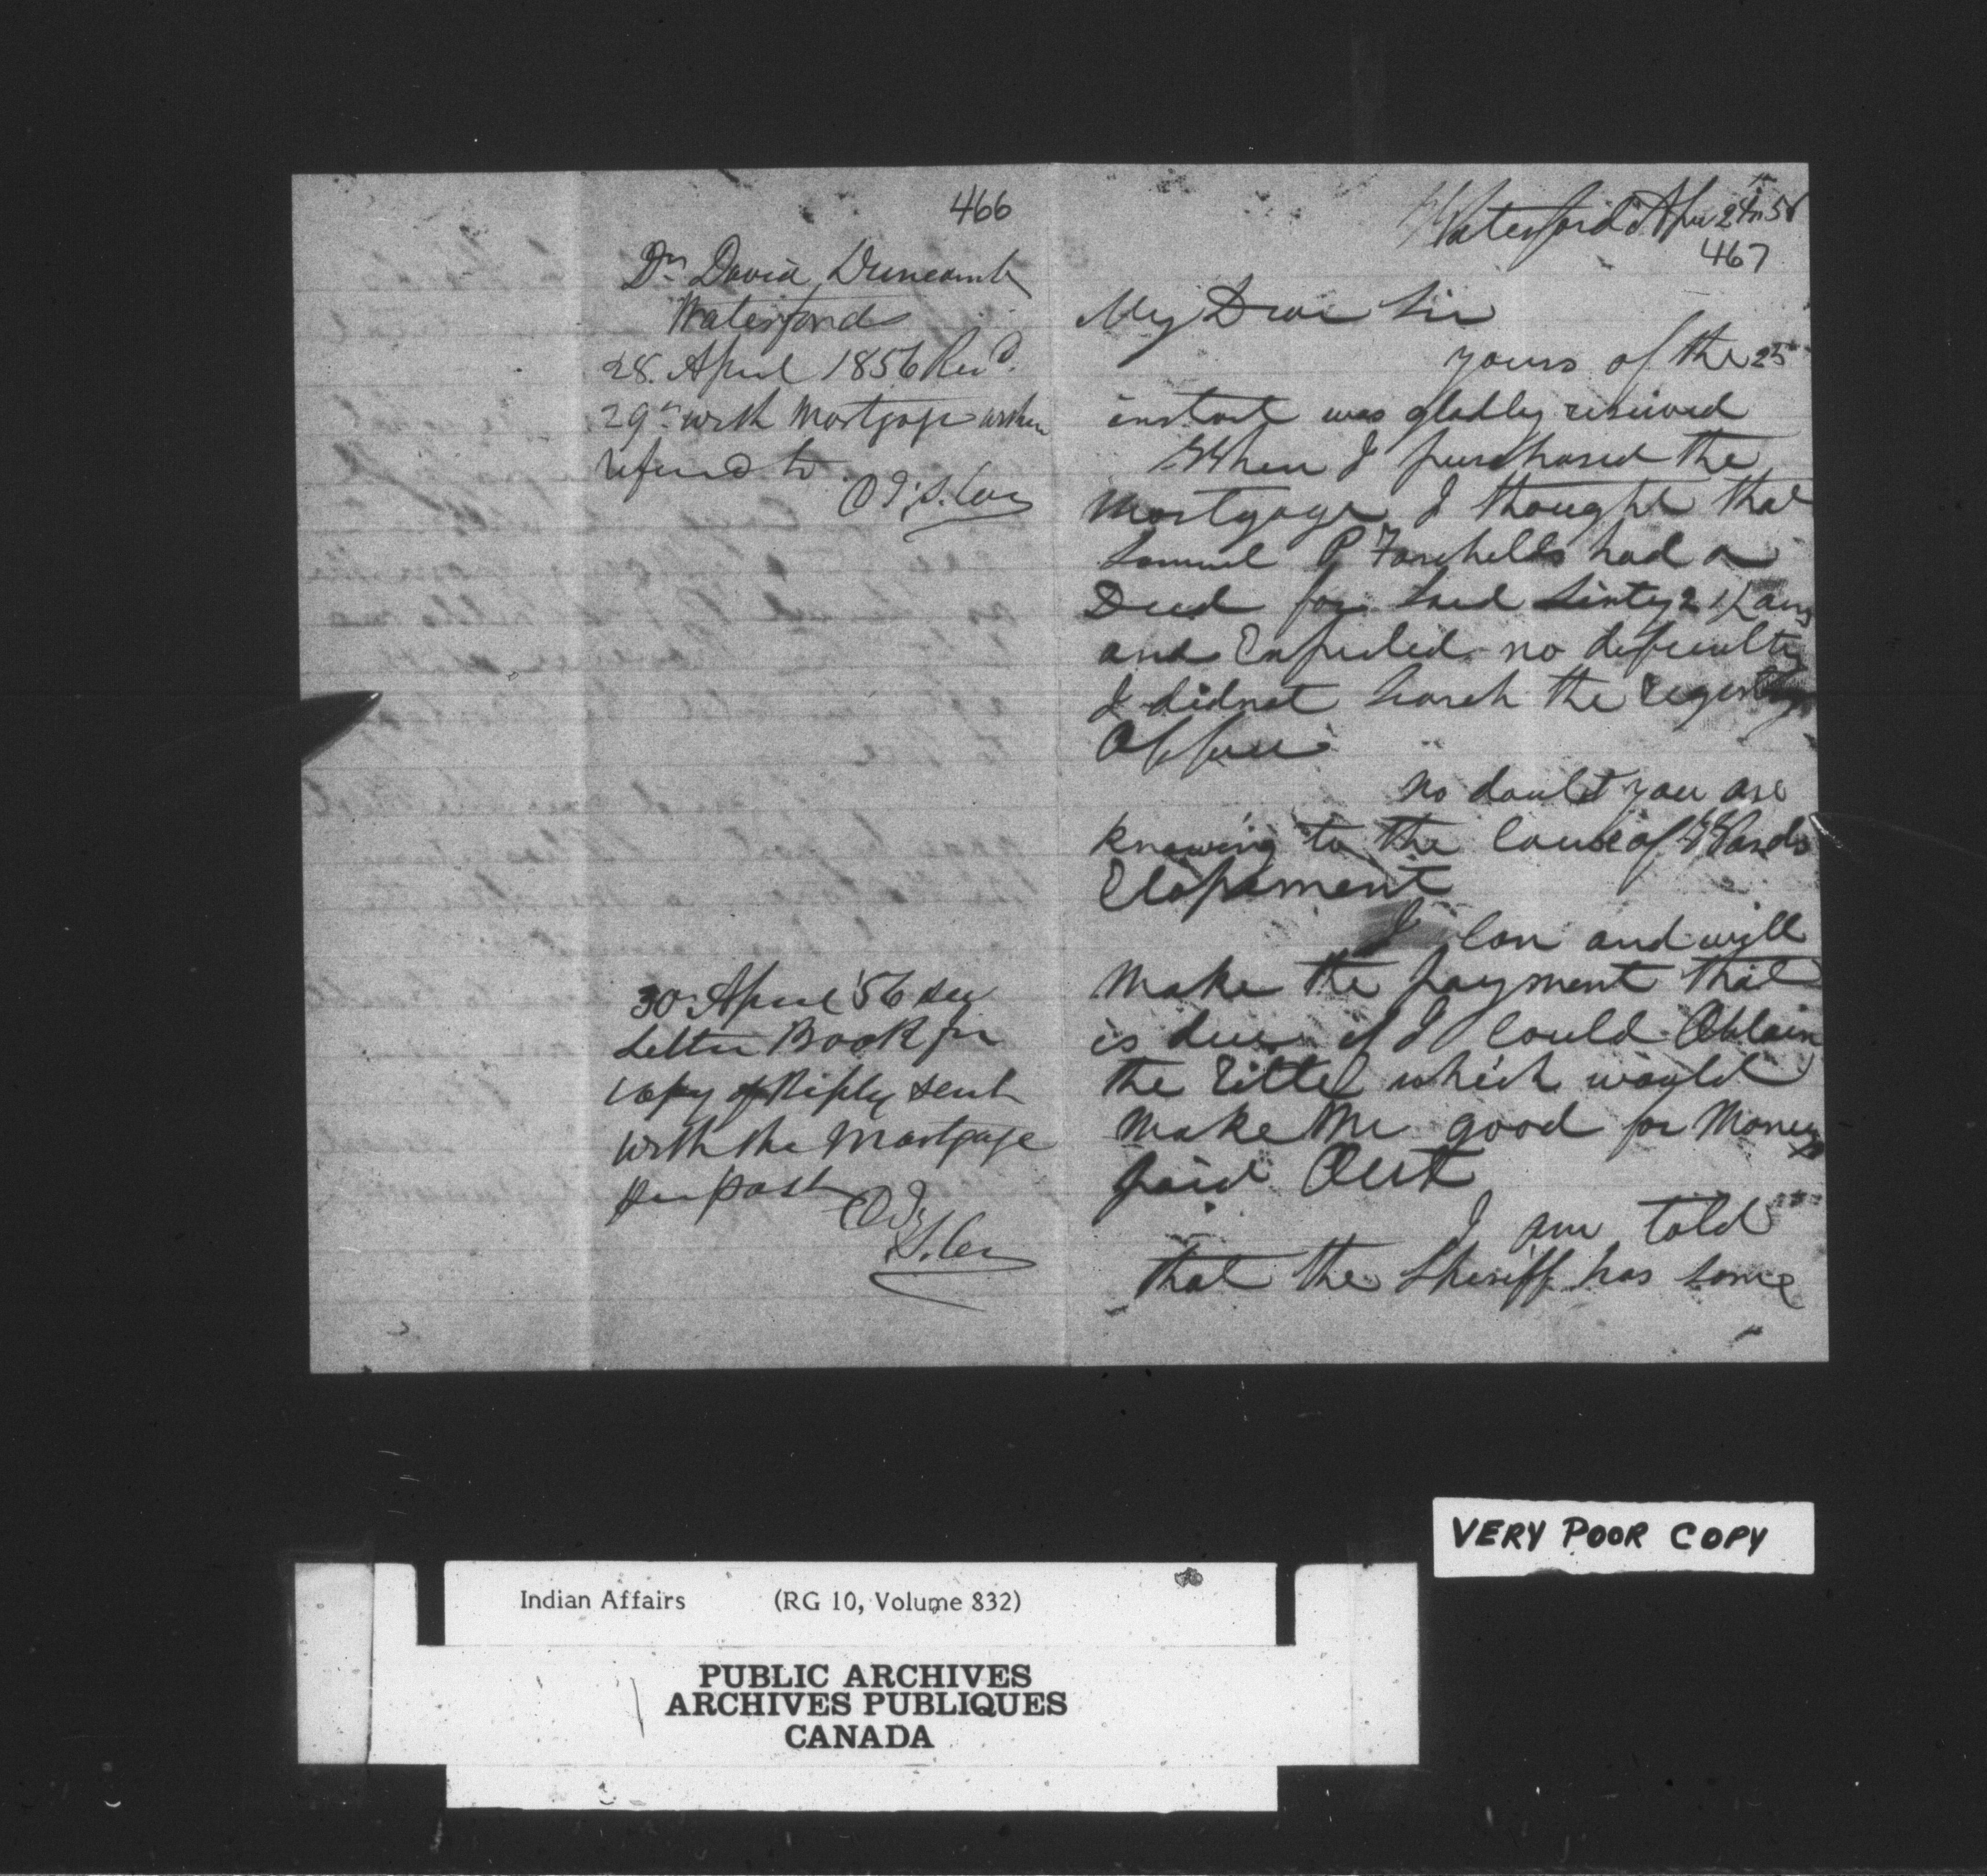 466
Dr. David Duncomb
Waterford
28. April 1856 Recd.
29th with Mortgage within
referred to
30 April '56 see
Letter Book for
copy of Reply sent
with the Mortgage
per post
Waterford Apr
467
My Dear Sir
yours of the 25
instant was gladly received
When I purchased the
Mortgage I thought that
Samuel P had a
Deed for said Sixty 2 1/2
and Expected no difficulty
I didnot Search the
Office
no doubt you are
knowing to the Cause of Wards
Elopement
I Can and will
Make the payment that
is due if I Could Obtain
the Tittel which would
Make Me good for Money
paid Out
I am told
that the Sheriff has some
VERY POOR COPY
Indian Affairs (RG 10, Volume 832)
PUBLIC ARCHIVES
ARCHIVES PUBLIQUES
CANADA